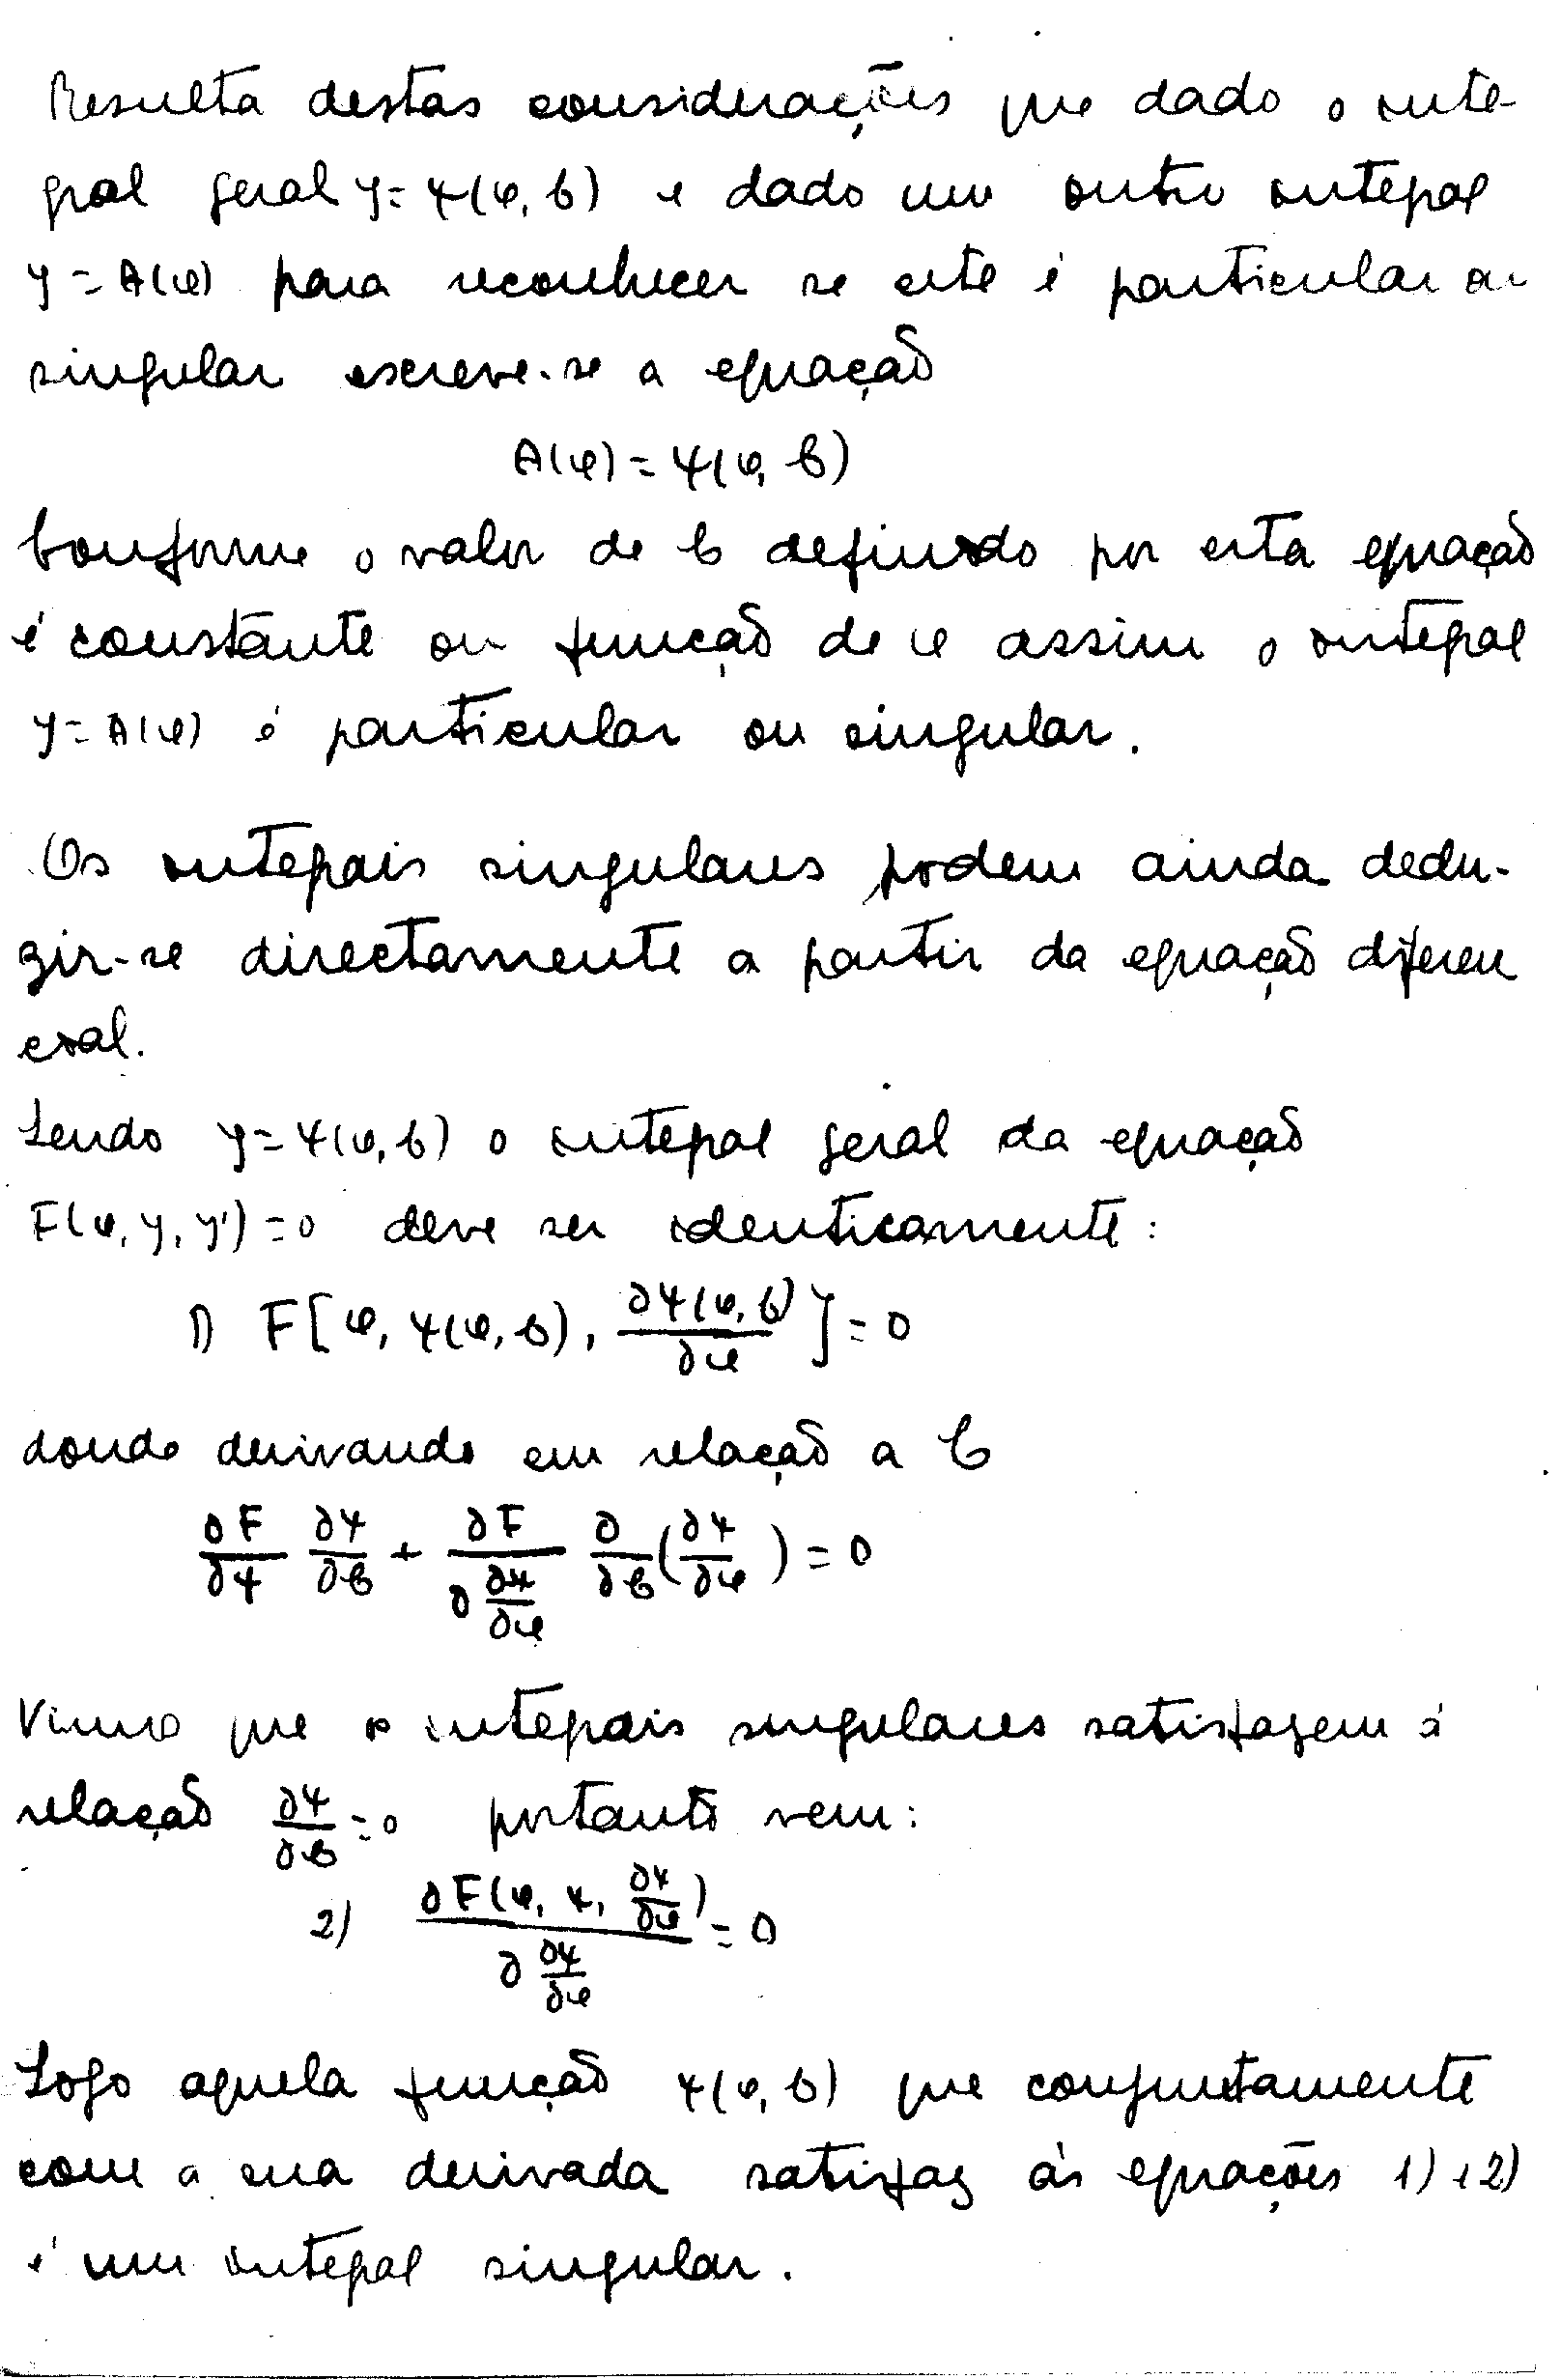 Resulta destas considerações que dado o inte-
gral geral y = ψ(φ, b) e dado um outro integral
y = A(φ) para reconhecer se este é particular ou
singular escreve-se a equação
A(φ) = ψ(φ, b)
Conforme o valor de b definido por esta equação
é constante ou função de φ assim o integral
y = A(φ) é particular ou singular.
Os integrais singulares podem ainda dedu-
zir-se directamente a partir da equação diferen
cial.
Sendo y = ψ(φ, b) o integral geral da equação
F(φ, y, y') = 0 deve ser identicamente:
1) F[φ, ψ(φ, b), ∂ψ(φ, b)/∂φ] = 0
donde derivando em relação a b
∂F/∂ψ ∂ψ/∂b + ∂F/∂(∂ψ/∂φ) ∂/∂b(∂ψ/∂φ) = 0
Vimos que os integrais singulares satisfazem à
relação ∂ψ/∂b = 0 portanto vem:
2) ∂F(φ, ψ, ∂ψ/∂φ)/∂(∂ψ/∂φ) = 0
Logo aquela função ψ(φ, b) que conjuntamente
com a sua derivada satisfaz às equações 1) e 2)
é um integral singular.